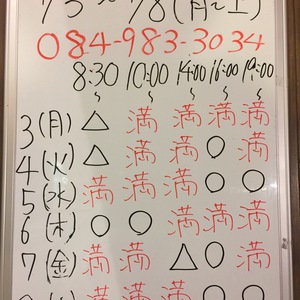 7/3〜7/8(月〜土)
084-983-3034
8:30〜 10:00〜 14:00〜 16:00〜 19:00〜
3(月) △ 満 満 満 満
4(火) △ 満 満 ○ 満
5(水) 満 満 満 ○ ○
6(木) ○ ○ 満 満 満
7(金) 満 満 △ ○ 満
満 満 満 ○ ○